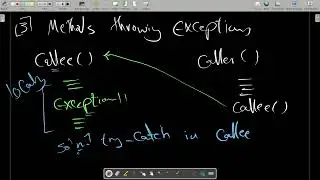 [3] Methods throwing Exceptions
Callee() Caller()
Locally
Exception!! Callee()
sol'n1 try-catch in Callee